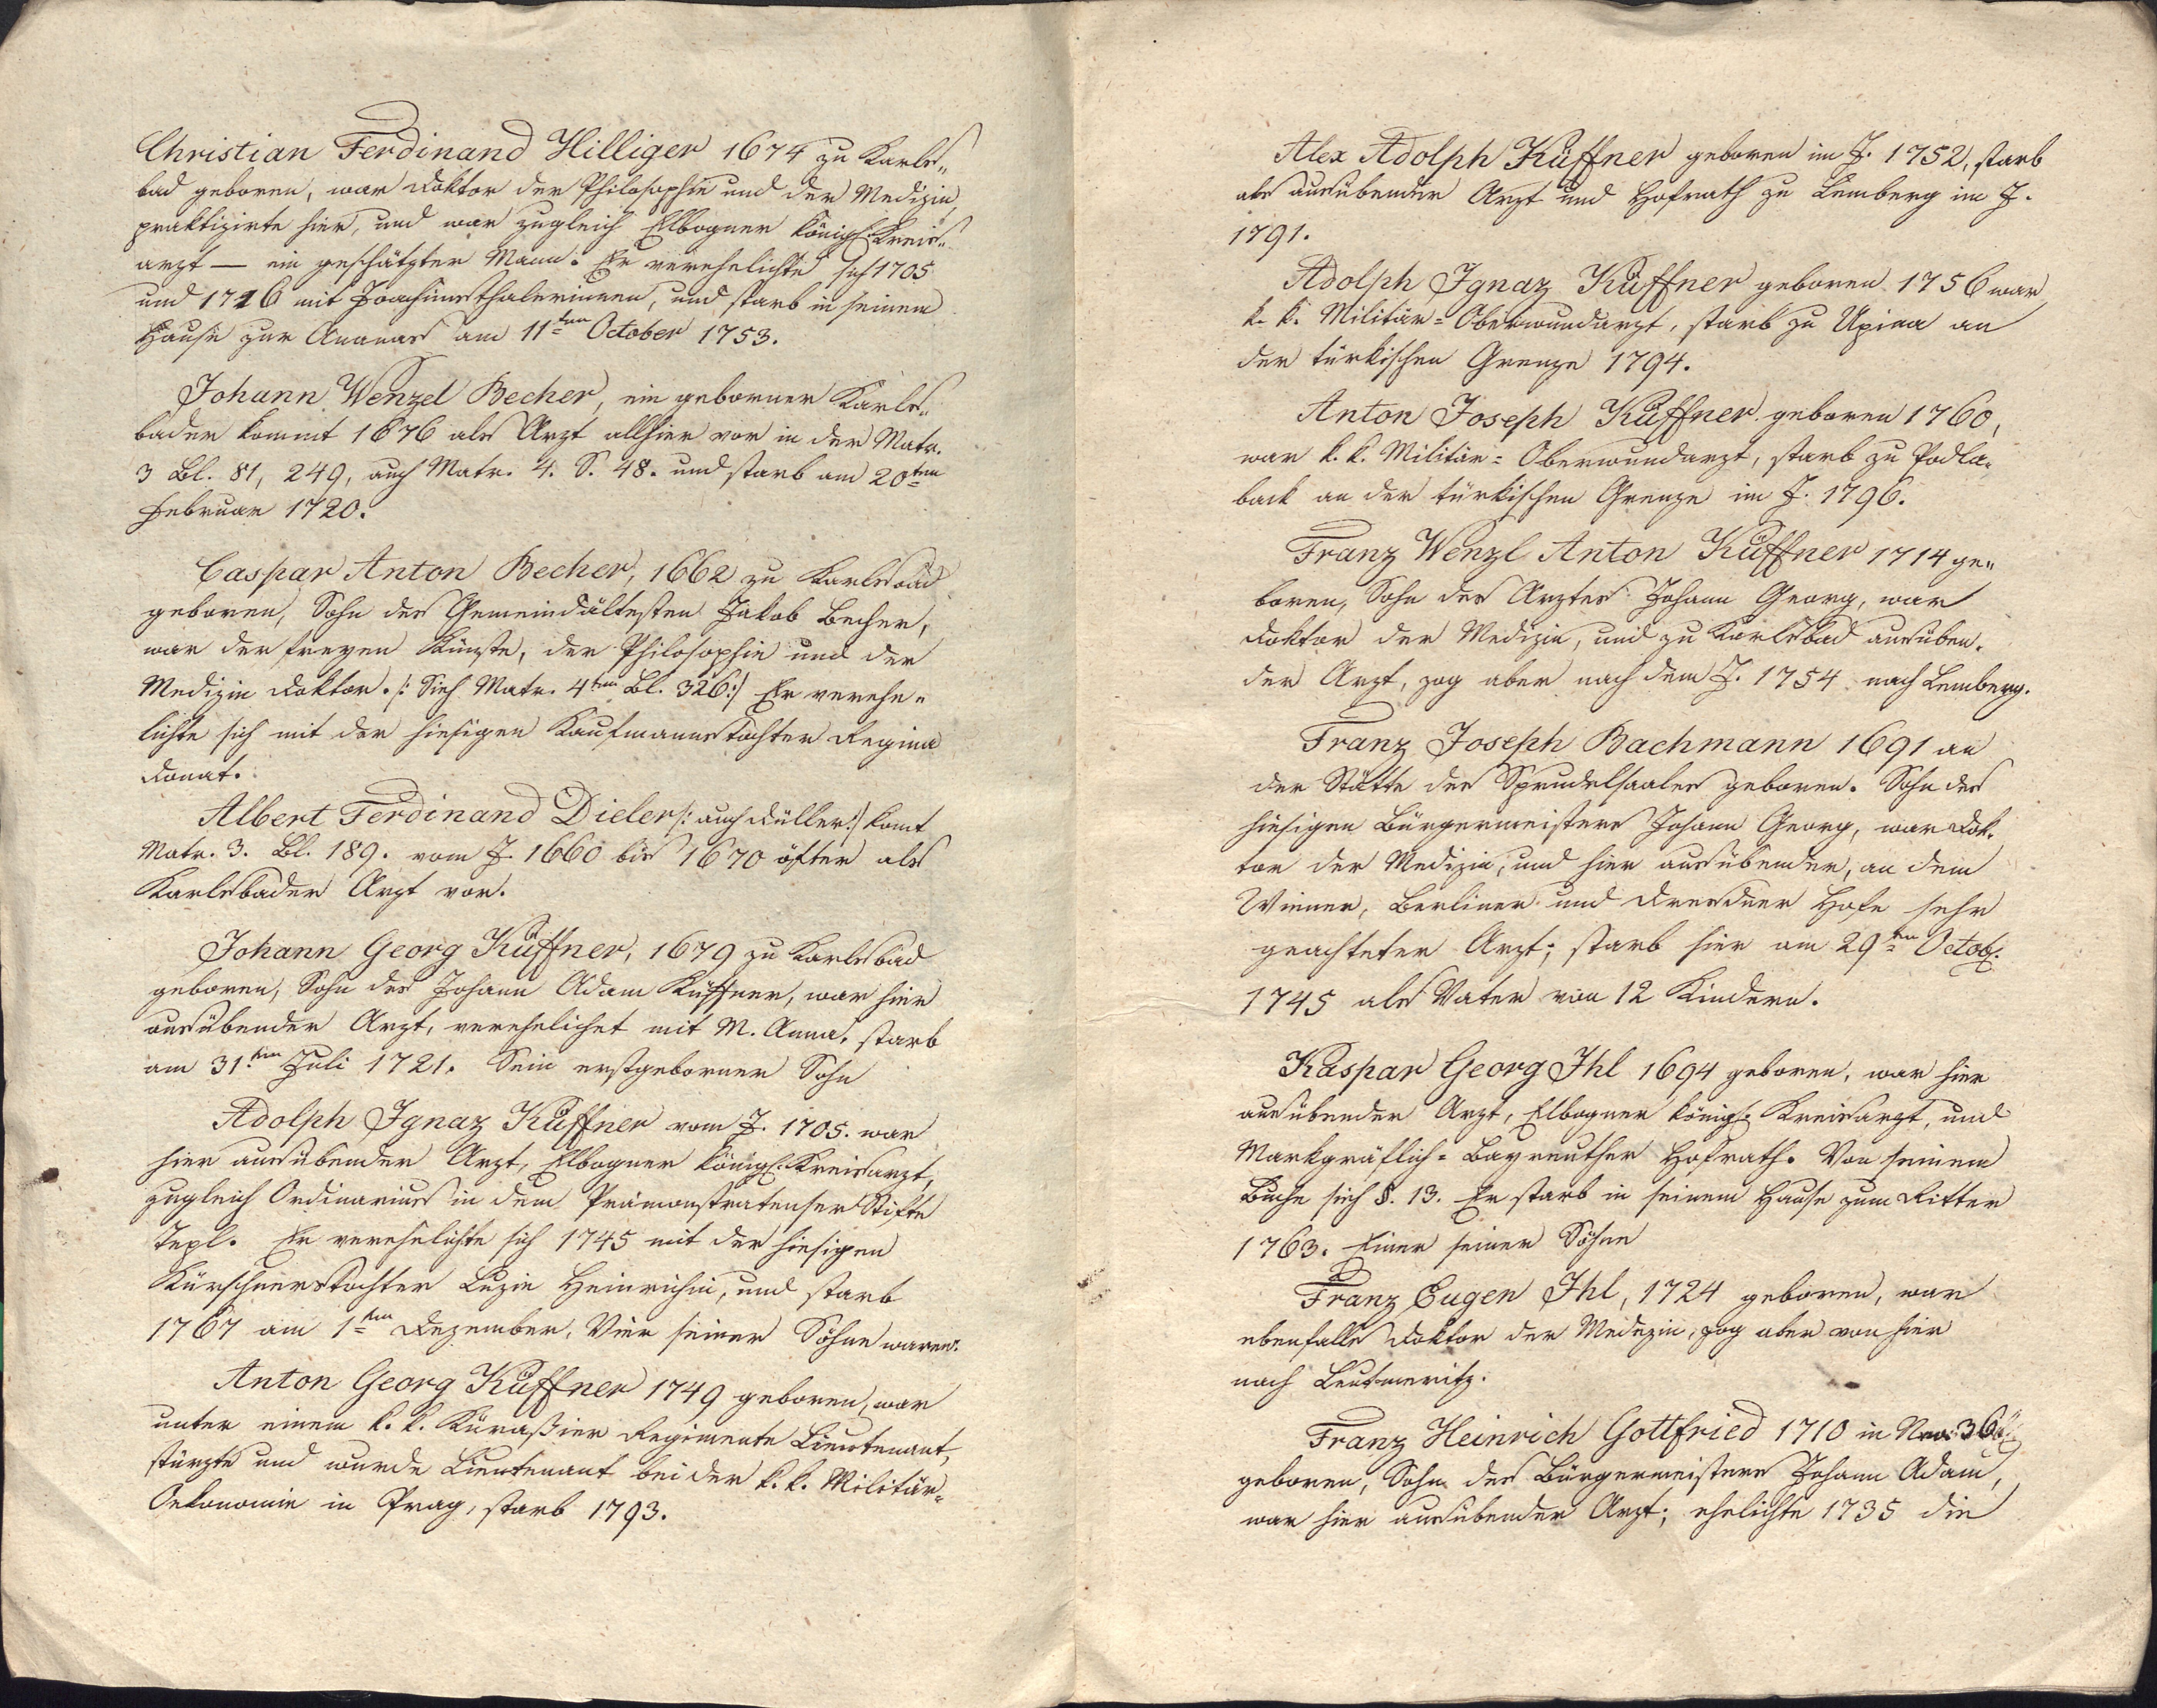 Christian Ferdinand Hilliger 1674 zu Karls„
bad geboren, war Doktor der Philosophie und der Medizin,
praktizirte hier, und war zugleich Elbogner königl. Kreis„
arzt — ein geschätzter Mann. Er verehelichte sich 1705
und 1726 mit Joachimsthalerinnen, und starb in seinem
Hause zur Ananas am 11ten October 1753.
Johann Wenzel Becher, ein geborner Karls„
bader kommt 1676 als Arzt allhier vor in der Matr.
3 Bl. 81, 249, auch Matr. 4. S. 48. und starb am 20ten
Februar 1720.
Caspar Anton Becher, 1662 zu Karlsbad
geboren, Sohn des Gemeindältesten Jakob Becher,
war der freyen Künste, der Philosophie und der
Medizin Doktor. /: Sieh Matr. 4ten Bl. 326:/ Er verehe„
lichte sich mit der hiesigen Kaufmannstochter Regina
Donat.
Albert Ferdinand Dieler /: auch Düller:/ komt
Matr. 3. Bl. 189. vom J. 1660 bis 1670 öfter als
Karlsbader Arzt vor.
Johann Georg Küffner, 1679 zu Karlsbad
geboren, Sohn des Johann Adam Küffner, war hier
ausübender Arzt, verehelichet mit M. Anna, starb
am 31ten Juli 1721. Sein erstgeborner Sohn
Adolph Ignaz Küffner vom J. 1705. war
hier ausübender Arzt, Elbogner königl. Kreisarzt,
zugleich Ordinarius in dem Prämonstratenser Stifte
Tepl. Er verehelichte sich 1745 mit der hiesigen
Kürschnerstochter Luzie Heinrichin, und starb
1767 am 1ten Dezember. Vier seiner Söhne waren:
Anton Georg Küffner 1749 geboren, war
unter einem k. k. Küraßier Regimente Lieutenant,
stürzte und wurde Lieutenant bei der k. k. Militär=
Oekonomie in Prag, starb 1793.
Alex Adolph Küffner geboren im J. 1752, starb
als ausübender Arzt und Hofrath zu Lemberg im J.
1791.
Adolph Ignaz Küffner geboren 1756 war
k. k. Militär=Oberwundarzt, starb zu Upina an
der türkischen Grenze 1794.
Anton Joseph Küffner geboren 1760,
war k. k. Militär=Oberwundarzt, starb zu Podla„
back an der türkischen Grenze im J. 1796.
Franz Wenzl Anton Küffner 1714 ge„
boren, Sohn des Arztes Johann Georg, war
Doktor der Medizin, und zu Karlsbad ausüben„
der Arzt, zog aber nach dem J. 1754 nach Lemberg.
Franz Joseph Bachmann 1691 an
der Stätte des Sprudelsaales geboren. Sohn des
hiesigen Bürgermeisters Johann Georg, war Dok„
tor der Medizin, und hier ausübender, an dem
Wiener, Berliner und Dresdner Hofe sehr
geachteter Arzt; starb hier am 29ten Octob.
1745 als Vater von 12 Kindern.
Kaspar Georg Ihl 1694 geboren, war hier
ausübender Arzt, Elbogner königl. Kreisarzt, und
Markgräflich=Bayreuther Hofrath. Von seinem
Buche sieh §. 13. Er starb in seinem Hause zum Ritter
1763. Einer seiner Söhne
Franz Eugen Ihl, 1724 geboren, war
ebenfalls Doktor der Medizin, zog aber von hier
nach Leutmeritz.
Franz Heinrich Gottfried 1710 in Nro 36
geboren, Sohn des Bürgermeisters Johann Adam,
war hier ausübender Arzt; ehelichte 1735 die